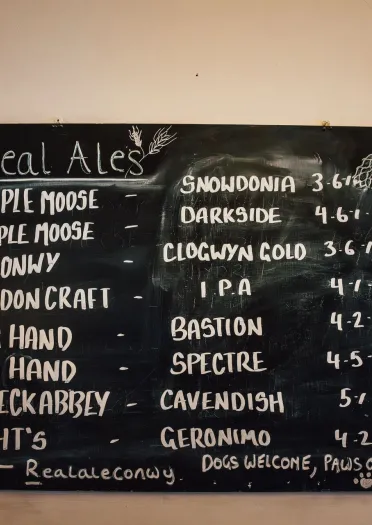 eal Ales
PLE MOOSE - SNOWDONIA 3.6%
PLE MOOSE - DARKSIDE 4.6%
ONWY - CLOGWYN GOLD 3.6
DON CRAFT - I.P.A 4%
HAND - BASTION 4.2
HAND - SPECTRE 4.5
ECKABBEY - CAVENDISH 5%
HT'S - GERONIMO 4.2
- Realaleconwy. DOGS WELCOME, PAWS O